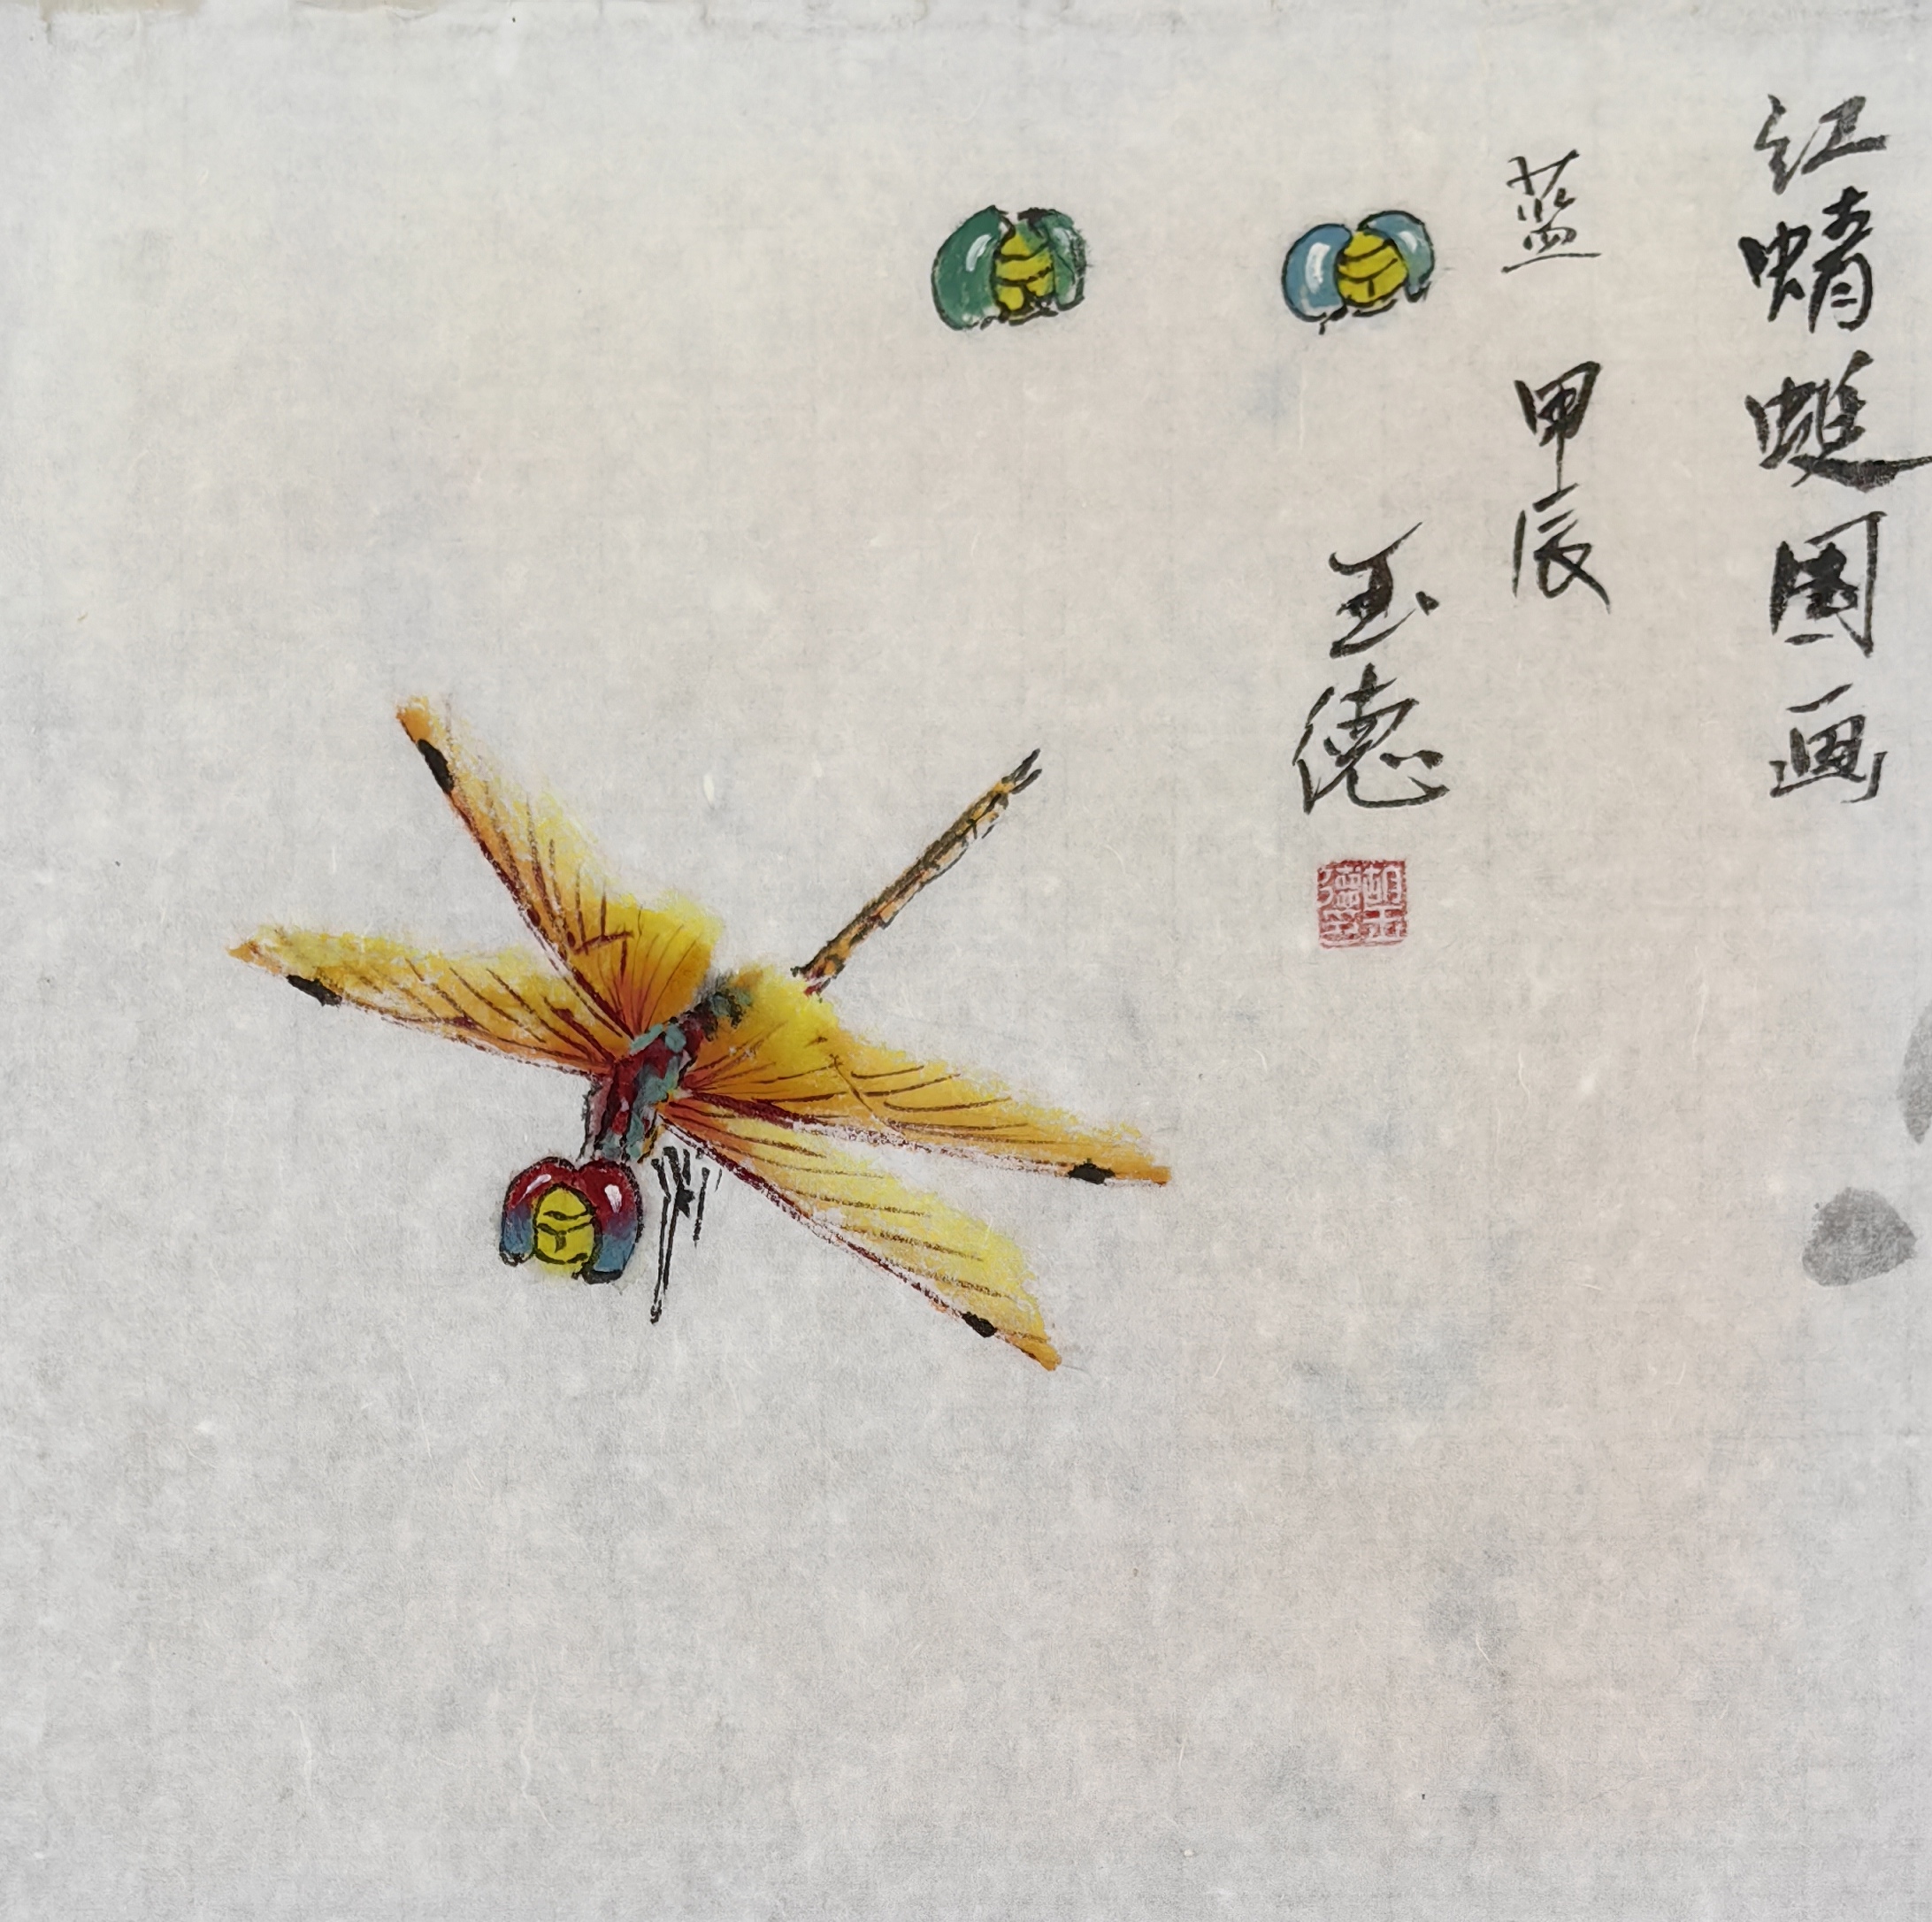 红蜻蜓国画
蓝 甲辰
玉德
胡玉德印